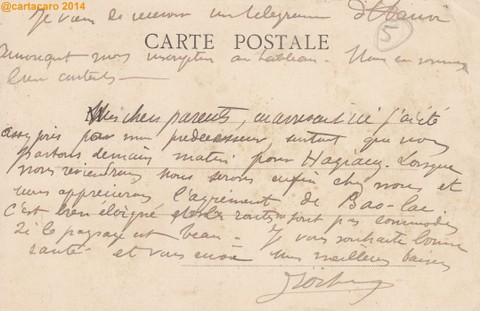 @cartacaro 2014
Je viens de recevoir un télégramme d'Hanoi
5
CARTE POSTALE
annonçant mon inscription au tableau. Nous en sommes
bien contents —
Mes chers parents, en arrivant ici j'ai été
pris pour mon prédécesseur, surtout que nous
partons demain matin pour Hagiang. Lorsque
nous reviendrons nous serons enfin chez nous et
nous apprécierons l'agrément de Bao-lac.
C'est bien éloigné et les routes sont pas commodes
Si le paysage est beau. Je vous souhaite bonne
santé et vous envoie mes meilleurs baisers